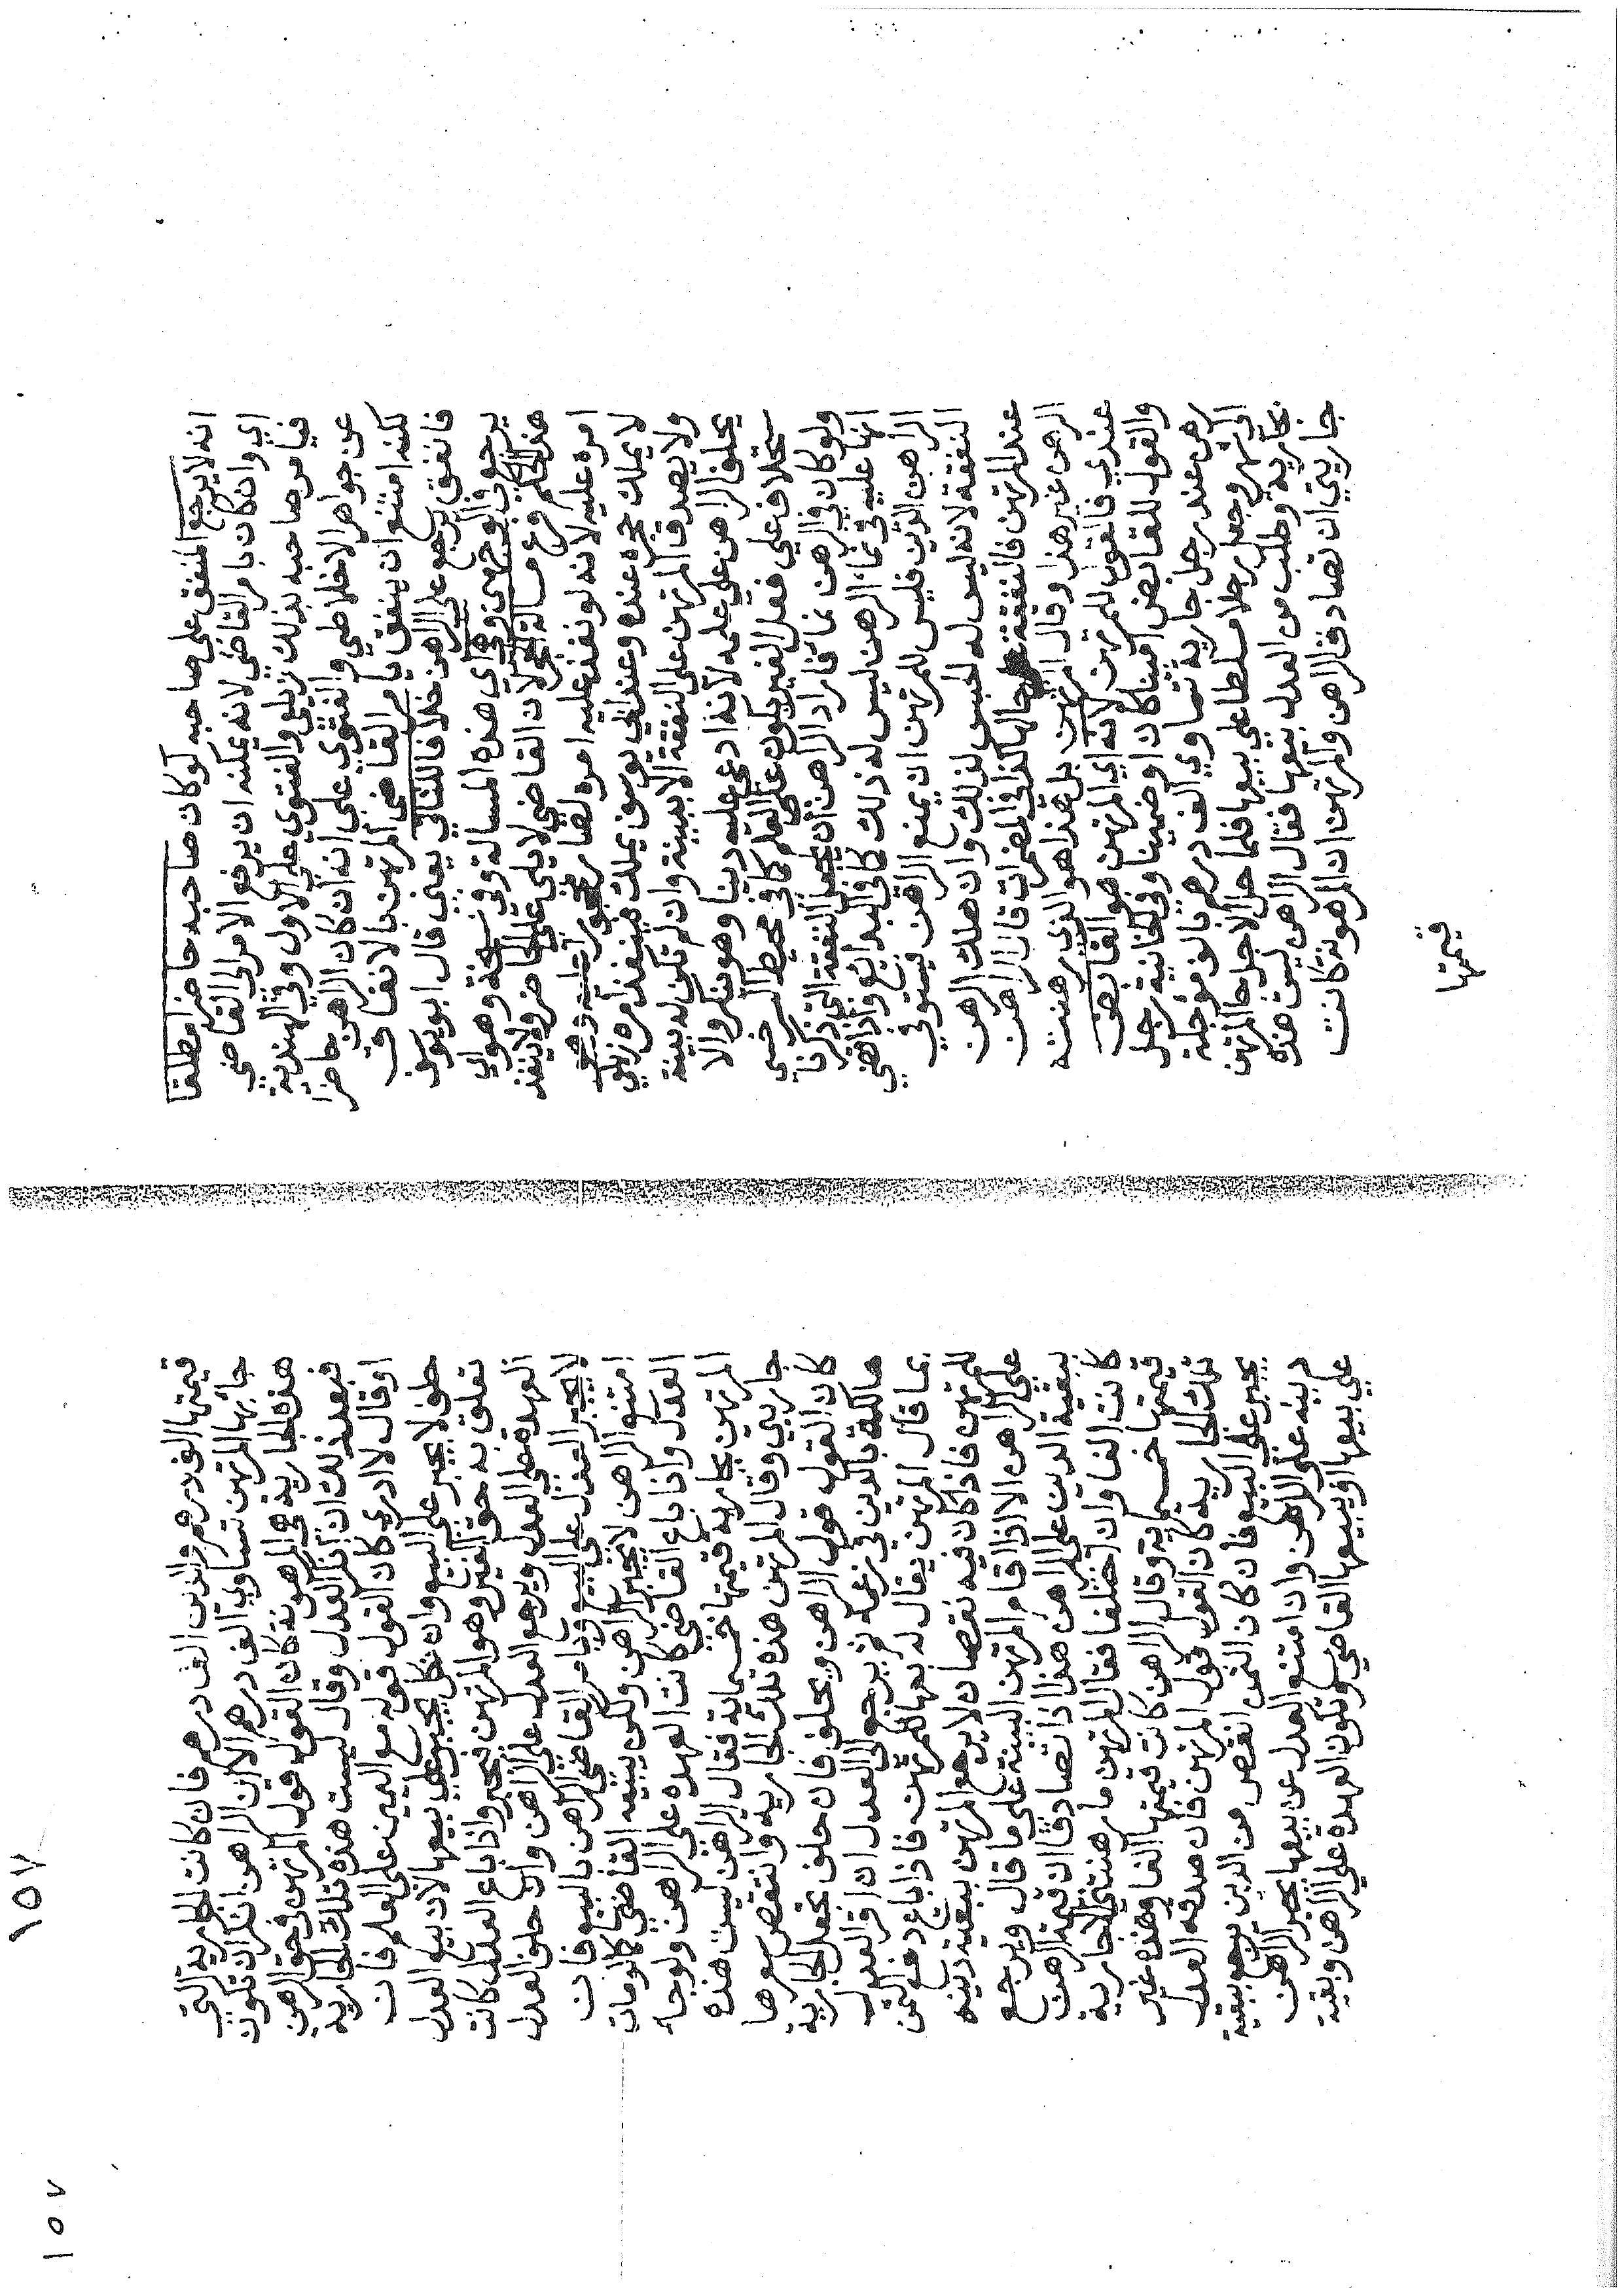 انه لا يرجع المنفق على صاحبه لو كان صاحبه حاضرا مطلقا
اي وان كان بامر القاضي لانه يمكنه ان يرفع الامر الى القاضي
فيامر صاحبه بذلك زيلعي والفتوي على الاول وفي الهندية
عن جواهر الاخلاطي والفتوي علي انه ان كان الراهن حاضرا
لكنه امتنع ان ينفق يامر القاضي المرتهن بالانفاق
فانفق يرجع على الراهن خلافا للثاني يعني قال ابو يوسف
يرجع في الوجهين وهي اي هذه المسالة وفي نسخة وهو اي
هذا الحكم فرع مسالة الحجر لان القاضي لا يلي علي الحاضر ولا ينفذ
امره عليه لانه لو نفذ عليه امره لصار محجورا عليه وهو
لا يملك حجره عنده وعند ابي يوسف يملك فينفذ امره زيلعي
ولا يصدق المرتهن على النفقة الا ببينة وان لم تكن له بينة
يحلف الراهن علي علمه لانه ادعي عليه دينا وهو ينكر والا
ستحلاف علي فعل الغير يكون علي العلم كذا في محيط السرخسي
ولو كان في الرهن نماء فاراد الراهن ان يجعل النفقة التي ذكرنا
انها عليه في نماء الرهن ليس له ذلك كذا في البدائع واذا قضي
الراهن الدين فليس للمرتهن ان يمنع الرهن ليستوفي
النفقة لانه ليس له الحبس لذلك وان هلك الرهن
عند المرتهن فالنفقة علي حالها كذا في المضمرات قال الراهن
الرهن غير هذا وقال المرتهن بل هذا هو الذي رهنته
عندي فالقول للمرتهن لانه اي المرتهن هو القابض
والقول للقابض امينا كان او ضمينا وفي الخانية رجل
رهن عند رجل جارية تساوي الف درهم بالف مؤجلة
الي شهر وجعل رجلا مسلطا علي بيعها فلما حل الاجل جاء المرتهن
بجارية وطلب من العدل بيعها فقال الراهن ليست هذه
جاريتي ان تصادق الراهن والمرتهن ان المرهونة كانت
قيمتها
١٥٧
قيمتها الف درهم والدين الف درهم فان كانت الجارية التي
جاء بها المرتهن تساوي الف درهم الا ان الراهن انكر ان تكون
هذه الجارية هي المرهونة كان القول قول المرتهن في حق الرهن
فبعد ذلك ان انكر العدل وقال ليست هذه تلك الجارية
او قال لا ادري كان القول قوله مع اليمين على العلم فان
حلف لا يجبر على البيع وان نكل يجبر علي بيعها لان بيع العدل
تعلق به حق الغير وهو المرتهن فيجبر واذا باع العدل كانت
العهدة على العدل ويرجع العدل علي الراهن وان حلف العدل
لا يجبر العدل علي البيع ويامر القاضي الراهن بالبيع فان
امتنع الراهن لا يجبر الراهن ولكن يبيعه القاضي كما لو مات
العدل واذا باع القاضي كانت العهده علي الراهن ولو جاء
المرتهن بجارية قيمتها خمسمائة فقال الراهن ليست هذه
جاريتي وقال المرتهن هذه تلك الجاريه وانتقص سعرها
كان القول قول الراهن ويحلف فان حلف تجعل الجارية
هالكة بالدين في زعمه ثم يرجع الي العدل ان اقر العدل
بما قال المرتهن يقال له بعها للمرتهن فاذا باع دفع الثمن
للمرتهن فاذا كان فيه نقصان لا يرجع المرتهن ببقية دينه
علي الراهن الا اذا اقام المرتهن البينة علي ما قال ويرجع
ببقية الدين علي الراهن هذا اذا تصادقا ان قيمة الرهن
كانت الفا وان اختلفا فقال المرتهن ما رهنتني الا جارية
قيمتها خمسمائة وقال الراهن كانت قيمتها الفا وهذه غير
تلك الجاريه كان القول قول المرتهن فان صدقه العدل
يجبر علي البيع فان كان الثمن انقص من الدين يرجع ببقية
دينه علي الراهن وان امتنع العدل عن بيعها يجبر الراهن
علي بيعها او يبيعها القاضي وتكون العهدة علي الراهن وبقية
١٥٧